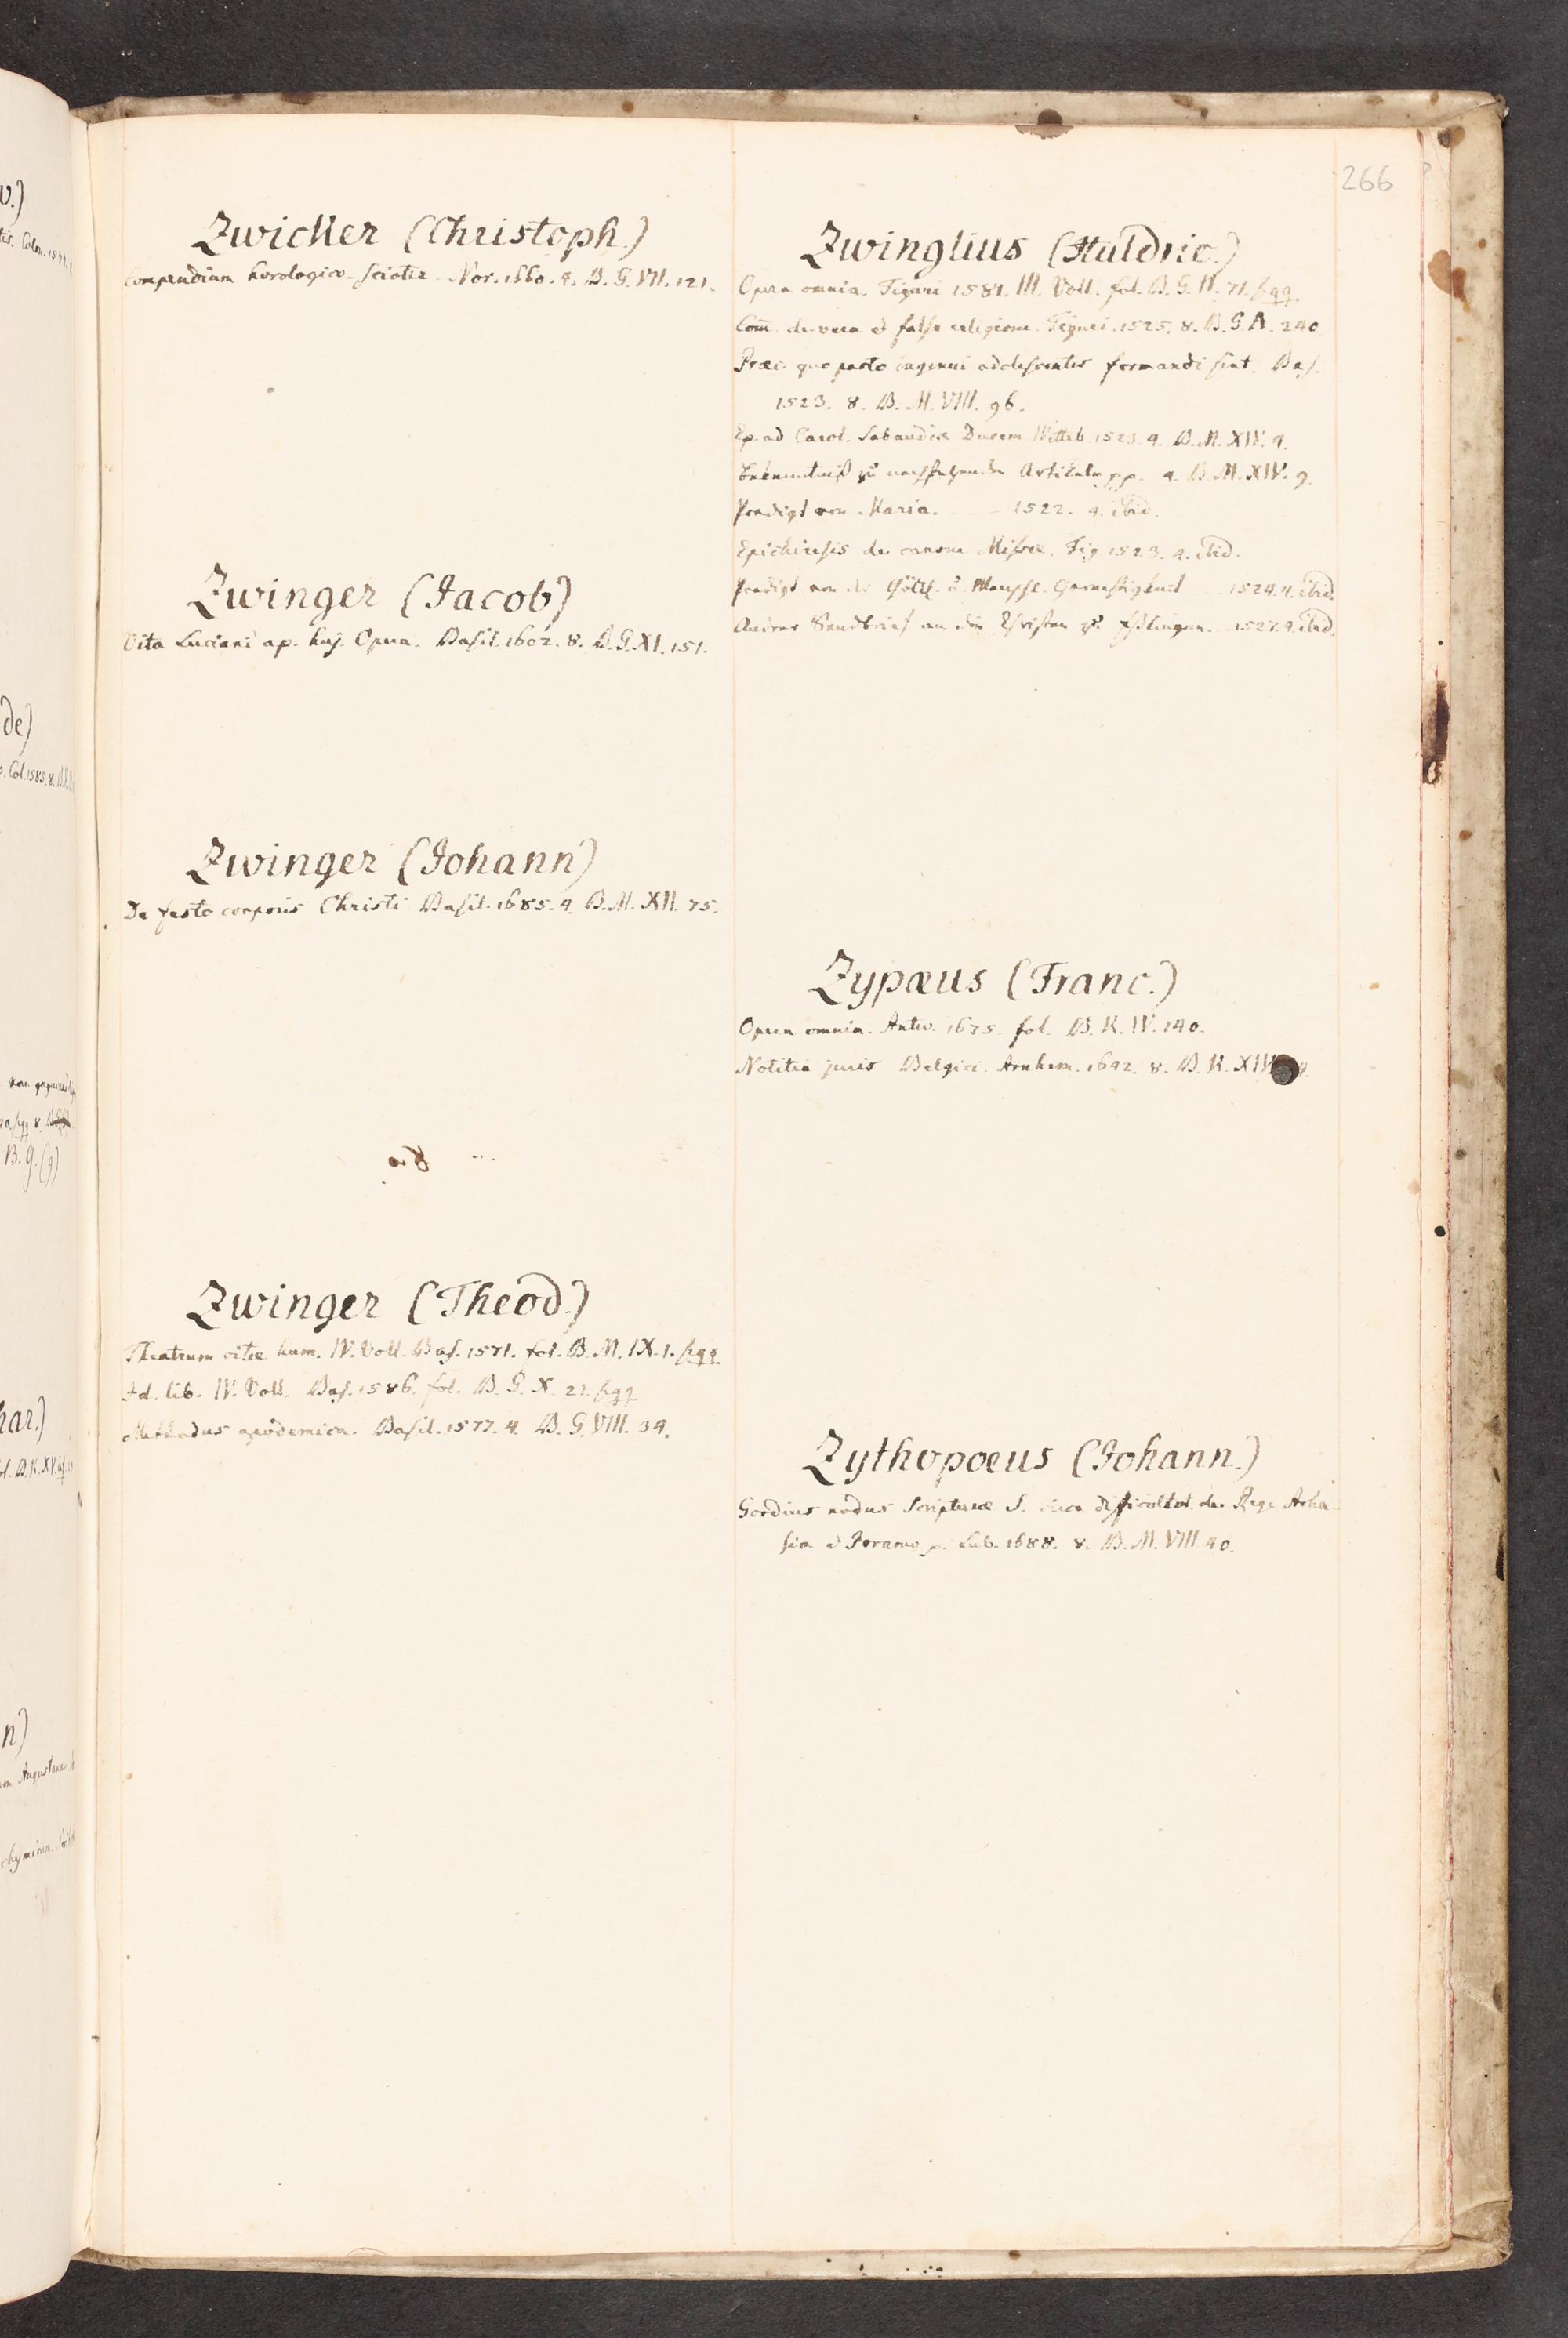 266
Zwicker (Christoph.)
Compendium horologico-scioter. Nor. 1660. 4. B. G. VII. 121.
Zwinger (Jacob)
Vita Luciani ap. huj. Opera. Basil. 1602. 8. B. G. XI. 151.
Zwinger (Johann)
De festo corporis Christi Basil. 1685. 4. B. M. XII. 75.
Zwinger (Theod.)
Theatrum vitæ hum. IV. Voll. Bas. 1571. fol. B. M. IX. 1. sqq.
Id. lib. IV. Voll. Bas. 1586. fol. B. G. X. 21. sqq
Methodus apodemica. Basil. 1577. 4. B. G. VIII. 34.
Zwinglius (Huldric.)
Opera omnia. Tiguri 1581. III. Voll. fol. B. G. II. 71. sqq.
Com̄. de vera et falsa religione. Tiguri. 1525. 8. B. G. A. 240
Præc. quo pacto ingenui adolescentes formandi sint. Bas.
1523. 8. B. M. VIII. 96.
Ep. ad Carol. Sabaudiæ Ducem Witteb. 1523. 4. B. M. XIV. 9.
Bekenntniß zu nachfolgenden Artikeln pp. 4. B. M. XIV. 9.
Predigt von Maria. 1522. 4. ibid.
Epichiresis de canone Missæ. Tig. 1523. 4. ibid.
Predigt von der Göttl. u. Menschl. Gerechtigkeit 1524. 4. ibid.
Andrer Sendbrief an die Christen zu Eßlingen. 1527. 4. ibid.
Zypæus (Franc.)
Opera omnia. Antw. 1675. fol. B. K. IV. 140.
Notitia juris Belgici. Arnhem. 1642. 8. B. K.
Zythopoeus (Johann.)
Gordius nodus Scripturæ S. circa difficultat. de Rege Acha-
sia et Joramo p. Lub. 1688. 8. B. M. VIII. 40.